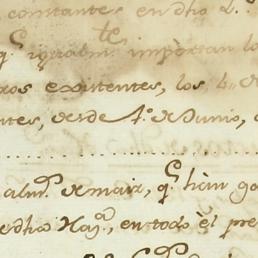 constantes en dho L.
q.e igualm.te importan lo
ros existentes, los
ntes, desde 1.o de Junio,
alm.s de maiz, q.e han
edha Haz.a, en todo èl pre